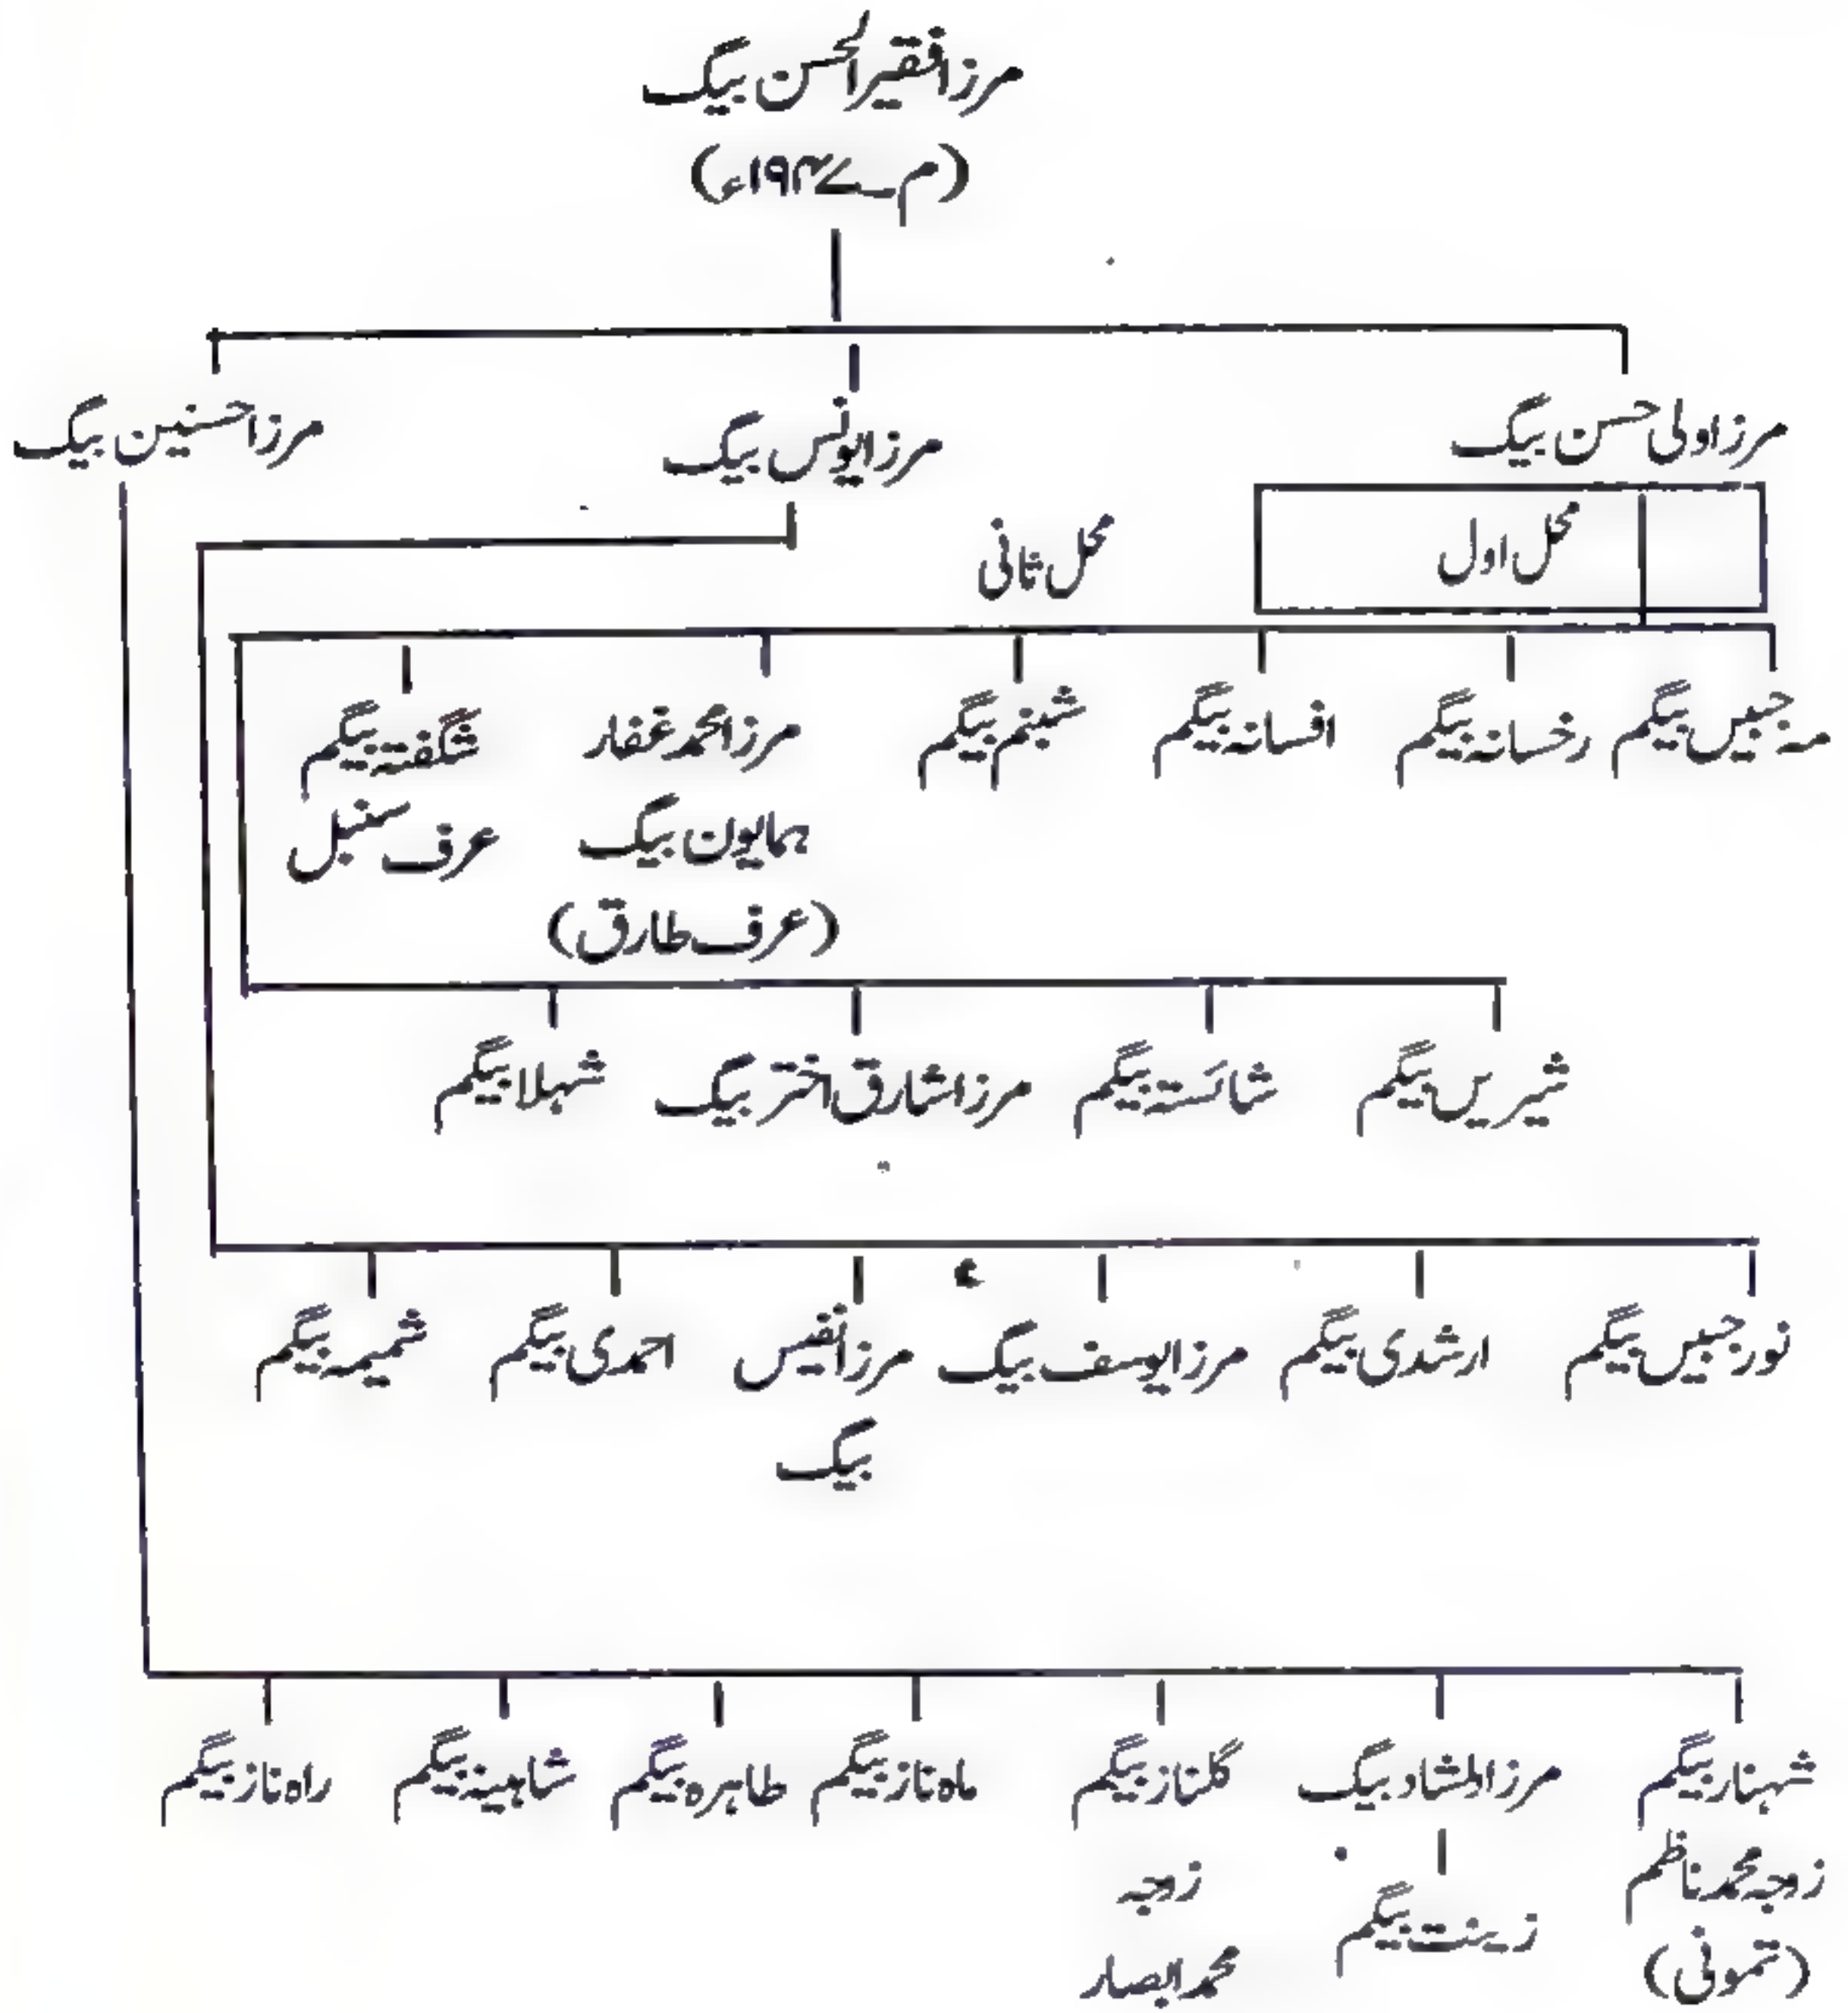 مرزا فقیر الحسن بیگ
(م ۱۹۴۷ء)
مرزا ولی حسن بیگ
مرزا یونس بیگ
مرزا حسنین بیگ
محل اول
محل ثانی
مہ جبیں بیگم
رخسانہ بیگم
افسانہ بیگم
شبنم بیگم
مرزا محمد غفار
ہمایون بیگ
(عرف طارق)
شگفتہ بیگم
عرف سنبل
شیریں بیگم
شائستہ بیگم
مرزا شارق اختر بیگ
شہلا بیگم
نور جبیں بیگم
ارشدی بیگم
مرزا یوسف بیگ
مرزا نفیس
بیگ
احمدی بیگم
شمیمہ بیگم
شہناز بیگم
زوجہ محمد ناظم
(تمونی)
مرزا دلشاد بیگ
زینت بیگم
گلناز بیگم
زوجہ
محمد ابصار
ماہ ناز بیگم
طاہرہ بیگم
شاہینہ بیگم
راہ ناز بیگم